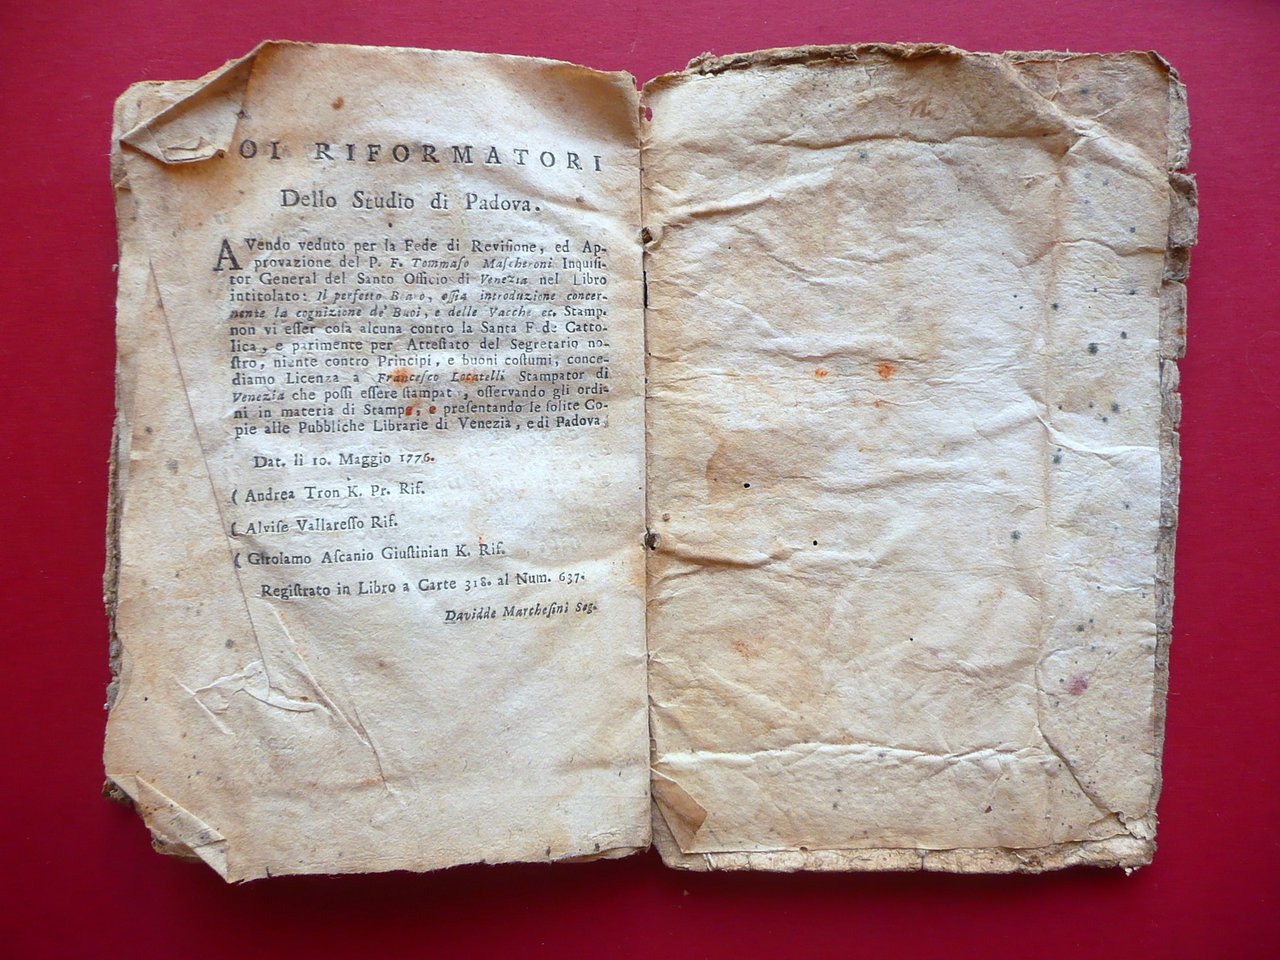 OI RIFORMATORI
Dello Studio di Padova.
AVendo veduto per la Fede di Revisione, ed Ap-
provazione del P. F. Tommaſo Maſcheroni Inquiſi-
tor General del Santo Officio di Venezia nel Libro
intitolato: Il perfetto Boaro, oſſia introduzione concer-
nente la cognizione de' Buoi, e delle Vacche ec. Stamp.
non vi eſſer coſa alcuna contro la Santa Fede Catto-
lica, e parimente per Atteſtato del Segretario no-
ſtro, niente contro Principi, e buoni coſtumi, conce-
diamo Licenza a Franceſco Locatelli Stampator di
Venezia che poſſi eſſere ſtampato, oſſervando gli ordi-
ni in materia di Stampe, e preſentando le ſolite Co-
pie alle Pubbliche Librarie di Venezia, e di Padova.
Dat. li 10. Maggio 1776.
( Andrea Tron K. Pr. Rif.
( Alviſe Vallareſſo Rif.
( Girolamo Aſcanio Giuſtinian K. Rif.
Regiſtrato in Libro a Carte 318. al Num. 637.
Davidde Marcheſini Seg.